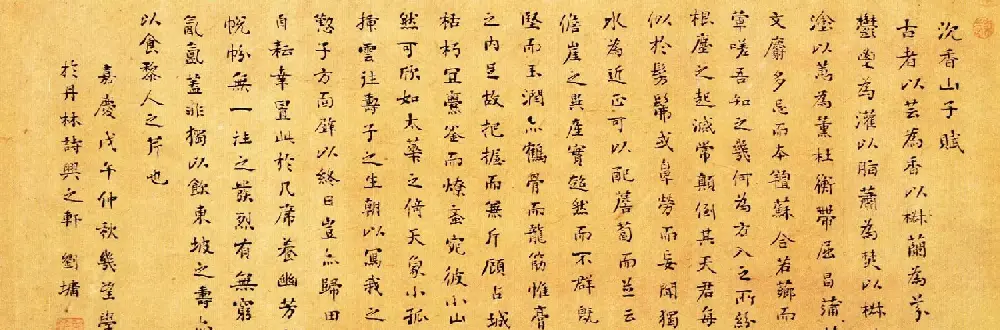 沈香山子賦
古者以芸為香以椒蘭為芬
鬱鬯為灌以脂蕭為焚以椒
塗以蕙為薰杜衡帶屈昌蒲
文麝多忌而本羶蘇合若薌而
葷嗟吾知之幾何為方入之所紛
根塵之起滅常顛倒其天君每
似於髣髴或鼻勞而妄聞獨
水為近正可以配薝蔔而並云
儋崖之異產實超然而不群既
堅而玉潤亦鶴骨而龍筋惟膏
之內足故把握而無斤顧占城
枯朽宜爨釜而燎蚉宛彼小山
然可欣如太華之倚天象小孤
插雲往壽子之生朝以寫我之
懃子方面壁以終日豈亦歸田
自耘幸置此於几席養幽芳
帨帉無一往之發烈有無窮
氤氳蓋非獨以飲東坡之壽亦
以食黎人之芹也
嘉慶戊午仲秋幾望學
於丹林詩興之軒 劉墉